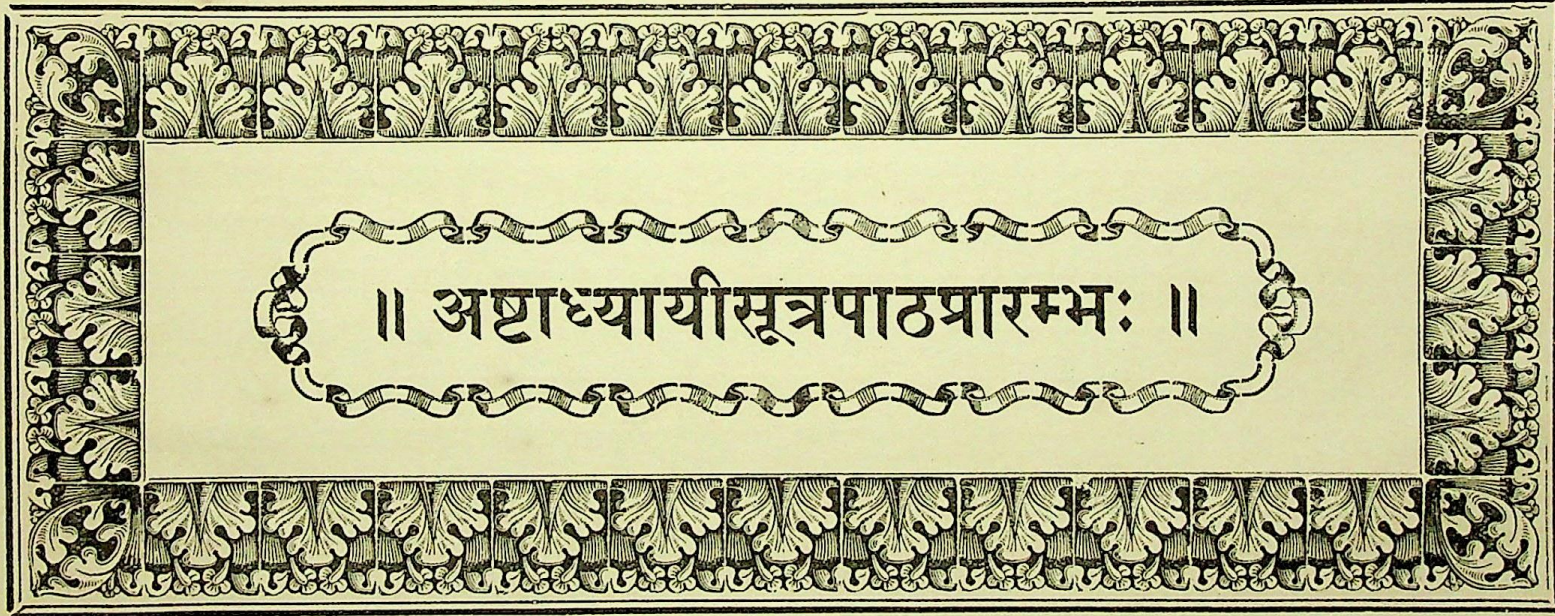 ॥ अष्टाध्यायीसूत्रपाठप्रारम्भः ॥